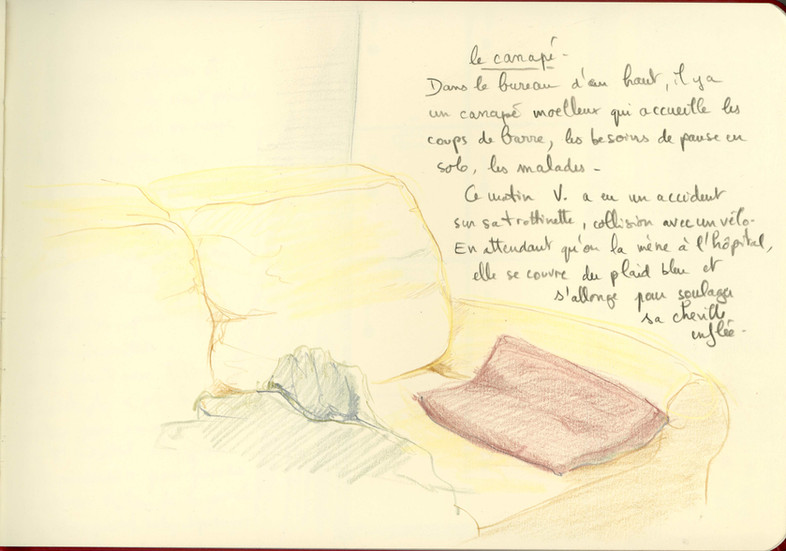 le canapé -
Dans le bureau d'en haut, il y a
un canapé moelleux qui accueille les
coups de barre, les besoins de pause en
solo, les malades -
Ce matin V. a eu un accident
sur sa trottinette, collision avec un vélo -
En attendant qu'on la mène à l'hôpital,
elle se couvre du plaid bleu et
s'allonge pour soulager
sa cheville
enflée -